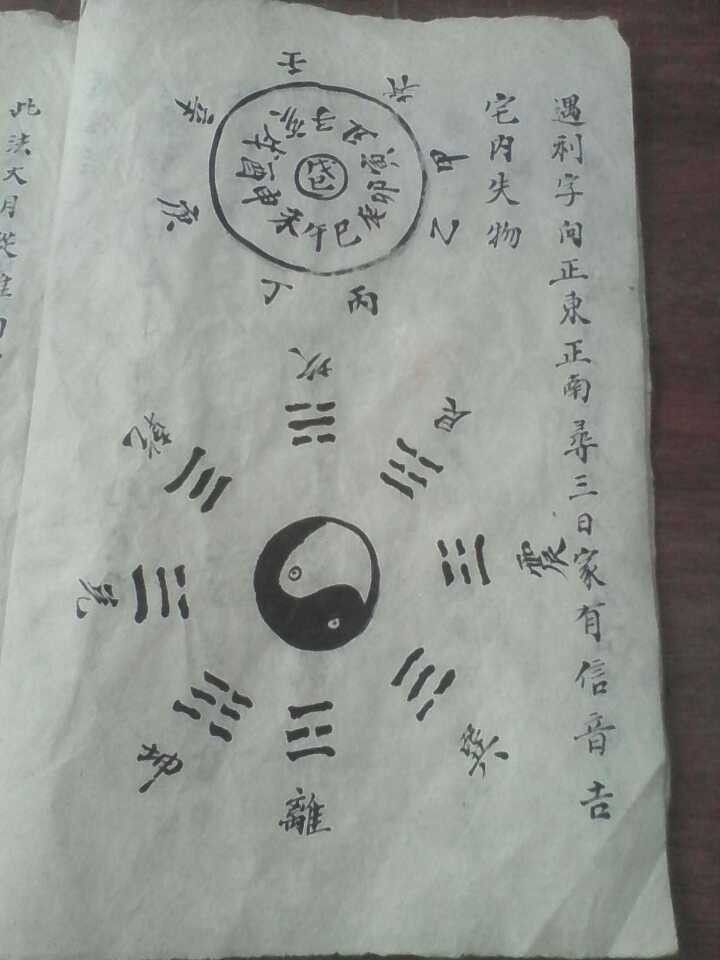 遇利字向正東正南尋三日家有信音吉
宅内失物
壬
癸
甲
乙
丙
丁
庚
辛
子
丑
寅
卯
辰
巳
午
未
申
酉
戌
亥
戊己
坎
艮
震
巽
離
坤
兌
乾
此法大月從